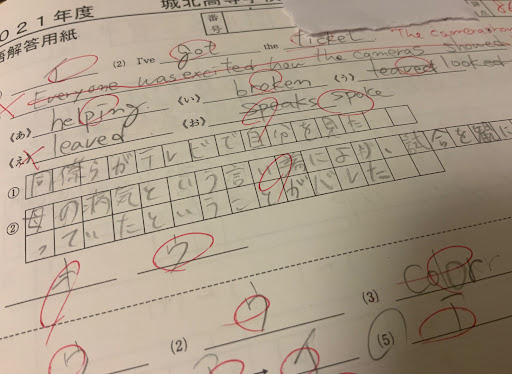 021年度 城北高等学校
語解答用紙 番号
(2) I've got the ticket
Everyone was excited how the cameras showed "The cameraman
(あ) helping (い) broken (う) leaved looked
(え) leaved (お) speaks spoke
① 同僚らがテレビで自分を見た
試合を観に
② 母の病気という言い より
っていたということがバレた
ウ
(2) ウ (3) color
イ (5) エ